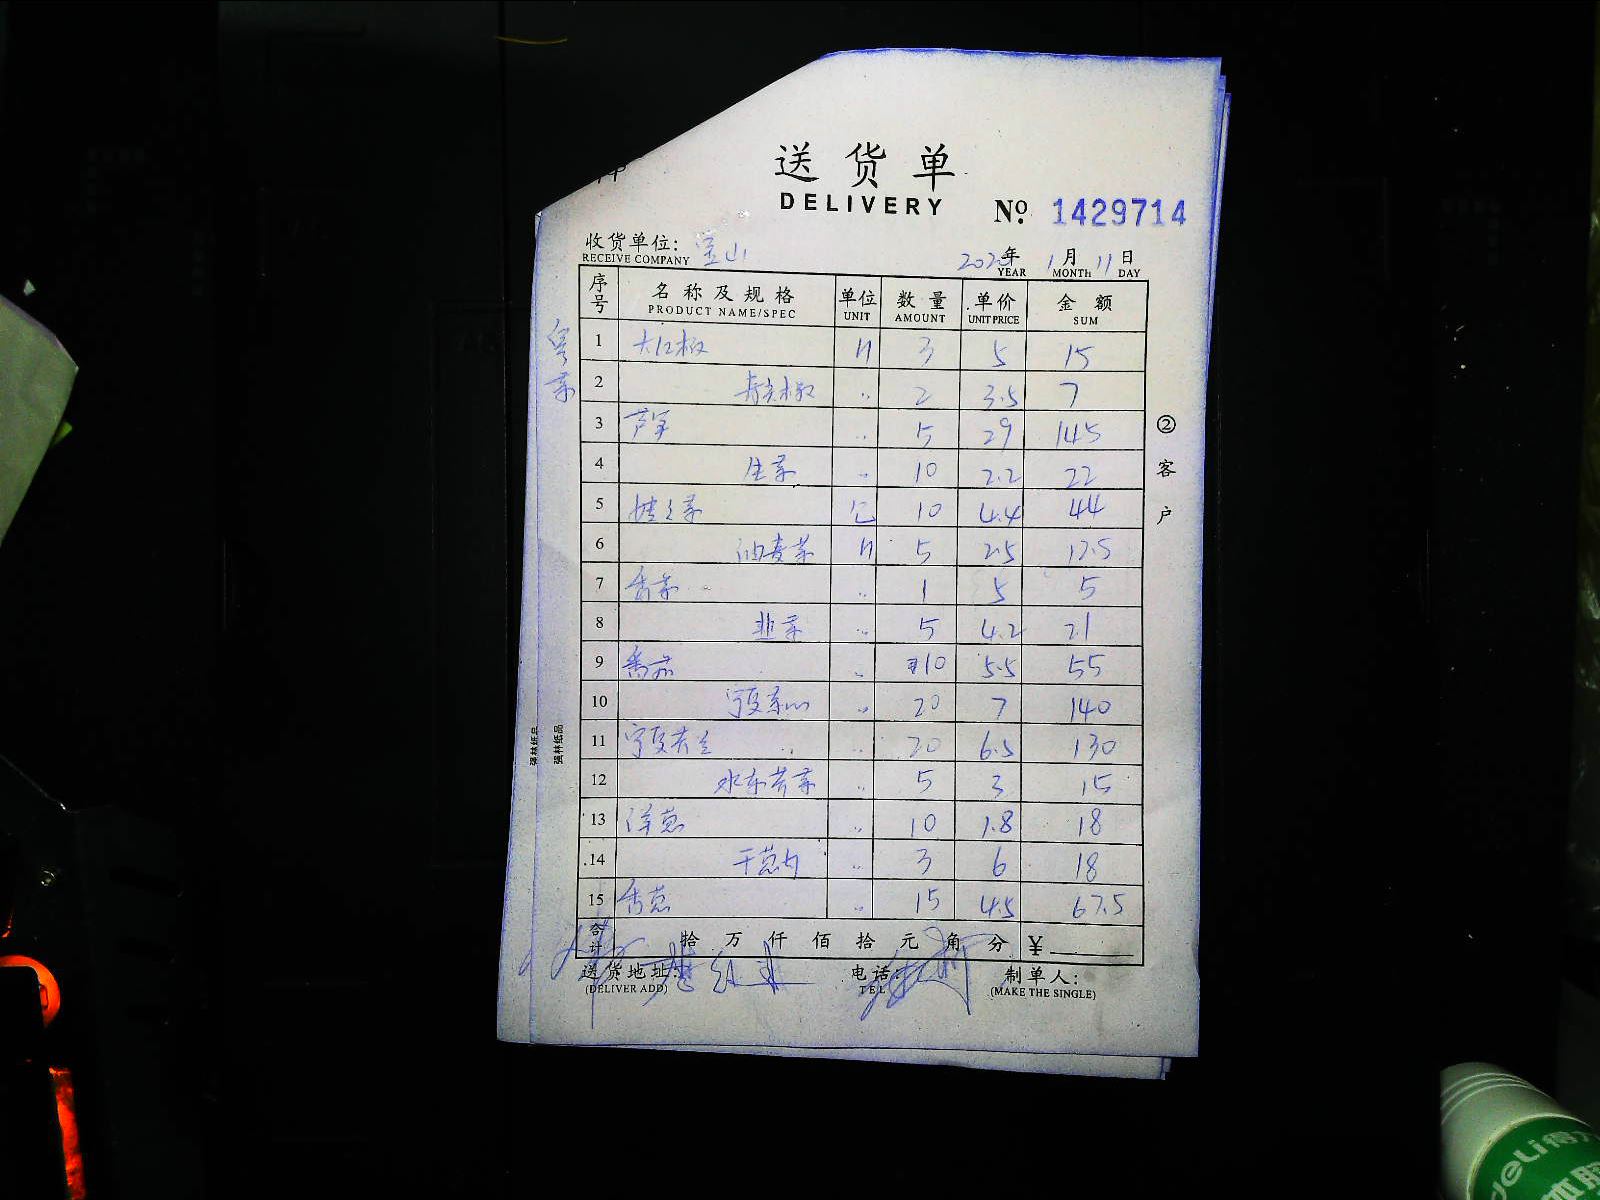 送货单
DELIVERY
No. 1429714
收货单位: 宝山
RECEIVE COMPANY
年 1月 11日
YEAR MONTH DAY
序号 名称及规格 单位 数量 单价 金额
PRODUCT NAME/SPEC UNIT AMOUNT UNIT PRICE SUM
1 大红椒 斤 3 5 15
2 青尖椒 〃 2 3.5 7
3 芦笋 〃 5 29 145
4 生菜 〃 10 2.2 22
5 10 4.4 44
6 油麦菜 斤 5 2.5 12.5
7 香菜 〃 1 5 5
8 韭菜 〃 5 4.2 21
9 番茄 〃 10 5.5 55
10 宁夏菜心 〃 20 7 140
11 宁夏芥兰 〃 20 6.5 130
12 水东芥菜 〃 5 3 15
13 洋葱 〃 10 1.8 18
14 干葱肉 〃 3 6 18
15 香葱 〃 15 4.5 67.5
合计 拾 万 仟 佰 拾 元 角 分 ¥
送货地址: 电话: 制单人:
(DELIVER ADD) TEL (MAKE THE SINGLE)
②客户
强林纸品
强林纸品
deli得力